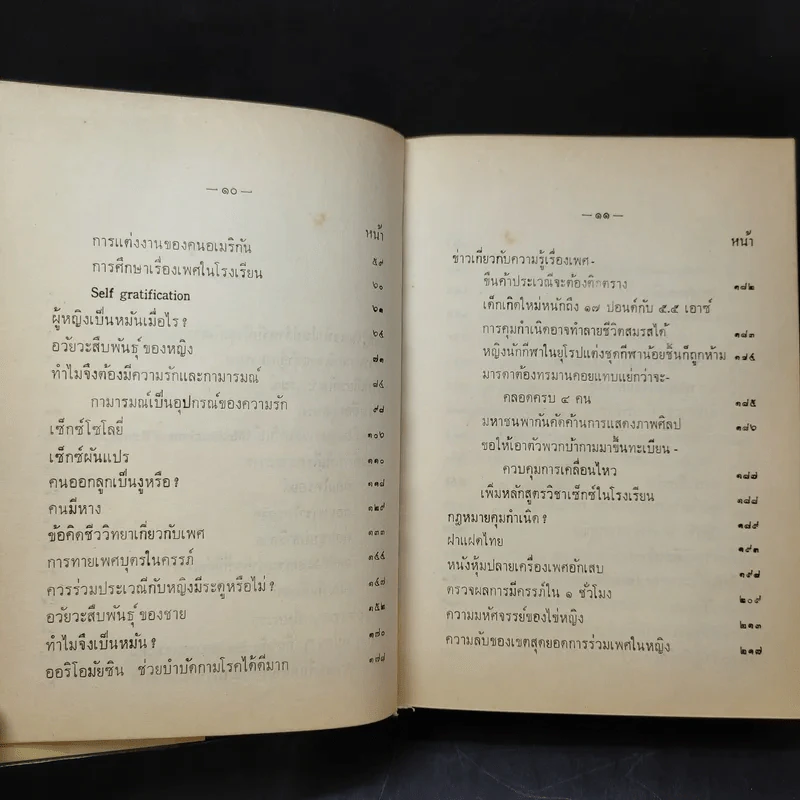 — ๑๐ —
หน้า
การแต่งงานของคนอเมริกัน ๕๙
การศึกษาเรื่องเพศในโรงเรียน ๖๐
Self gratification ๖๑
ผู้หญิงเป็นหมันเมื่อไร ? ๖๕
อวัยวะสืบพันธุ์ของหญิง ๗๑
ทำไมจึงต้องมีความรักและกามารมณ์ ๘๔
กามารมณ์เป็นอุปกรณ์ของความรัก ๙๘
เซ็กซ์โซโลยี่ ๑๐๖
เซ็กซ์ผันแปร ๑๑๐
คนออกลูกเป็นงูหรือ ? ๑๑๘
คนมีหาง ๑๒๙
ข้อคิดชีววิทยาเกี่ยวกับเพศ ๑๓๓
การทายเพศบุตรในครรภ์ ๑๔๔
ควรร่วมประเวณีกับหญิงมีระดูหรือไม่ ? ๑๔๗
อวัยวะสืบพันธุ์ของชาย ๑๕๒
ทำไมจึงเป็นหมัน ? ๑๗๐
ออริโอมัยซิน ช่วยบำบัดกามโรคได้ดีมาก ๑๗๘
— ๑๑ —
หน้า
ข่าวเกี่ยวกับความรู้เรื่องเพศ-
ขืนค้าประเวณีจะต้องติดตราง ๑๘๒
เด็กเกิดใหม่หนักถึง ๑๗ ปอนด์กับ ๕.๕ เอาซ์
การคุมกำเนิดอาจทำลายชีวิตสมรสได้ ๑๘๓
หญิงนักกีฬาในยุโรปแต่งชุดกีฬาน้อยชิ้นก็ถูกห้าม ๑๘๔
มารดาต้องทรมานคอยแทบแย่กว่าจะ-
คลอดครบ ๔ คน ๑๘๕
มหาชนพากันคัดค้านการแสดงภาพศิลป ๑๘๖
ขอให้เอาตัวพวกบ้ากามมาขึ้นทะเบียน -
ควบคุมการเคลื่อนไหว ๑๘๗
เพิ่มหลักสูตรวิชาเซ็กซ์ในโรงเรียน ๑๘๘
กฎหมายคุมกำเนิด ? ๑๘๙
ฝาแฝดไทย ๑๙๑
หนังหุ้มปลายเครื่องเพศอักเสบ ๑๙๘
ตรวจผลการมีครรภ์ใน ๑ ชั่วโมง ๒๐๙
ความมหัศจรรย์ของไข่หญิง ๒๑๓
ความลับของเขตสุดยอดการร่วมเพศในหญิง ๒๑๗